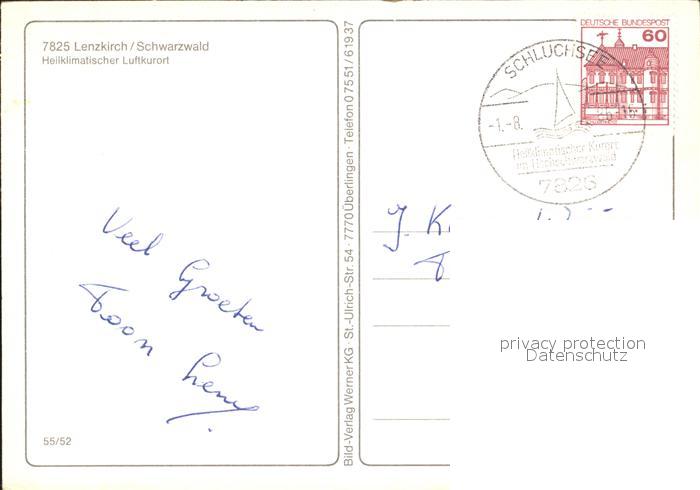 7825 Lenzkirch / Schwarzwald
Heilklimatischer Luftkurort
Veel Groeten
Toon
55/52
Bild-Verlag Werner KG · St.-Ulrich-Str. 54 · 7770 Überlingen · Telefon 0 75 51 / 6 19 37
DEUTSCHE BUNDESPOST
60
SCHLUCHSEE
-1.-8.
Heilklimatischer Kurort
im Hochschwarzwald
7826
J. K
privacy protection
Datenschutz